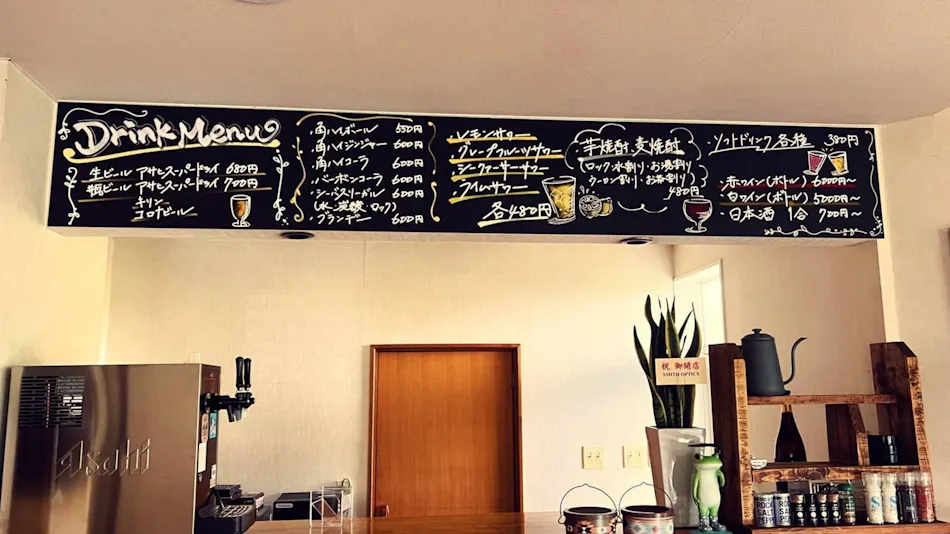 Drink Menu
生ビール アサヒスーパードライ 680円
瓶ビール アサヒスーパードライ 700円
キリン
コロナビール
・角ハイボール 550円
・角ハイジンジャー 600円
・角ハイコーラ 600円
・バーボンコーラ 600円
・シーバスリーガル 600円
(水、炭酸・ロック)
・ブランデー 600円
・レモンサワー
・グレープフルーツサワー
・シークァーサーサワー
・ライムサワー
各480円
芋焼酎、麦焼酎
(ロック・水割り・お湯割り
ウーロン割り・お茶割り)
480円
・ソフトドリンク各種 380円
・赤ワイン(ボトル) 6000円~
・白ワイン(ボトル) 5000円~
・日本酒 1合 700円~
Asahi
祝 御開店
ROCK
SALT
PEPP
ROCK
SALT
PEP
S
S